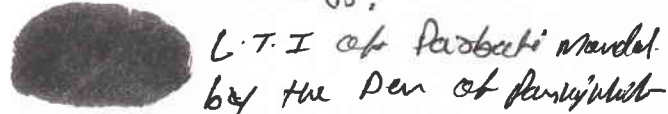 L.T.I of Parbati Mandal.
by the Pen of